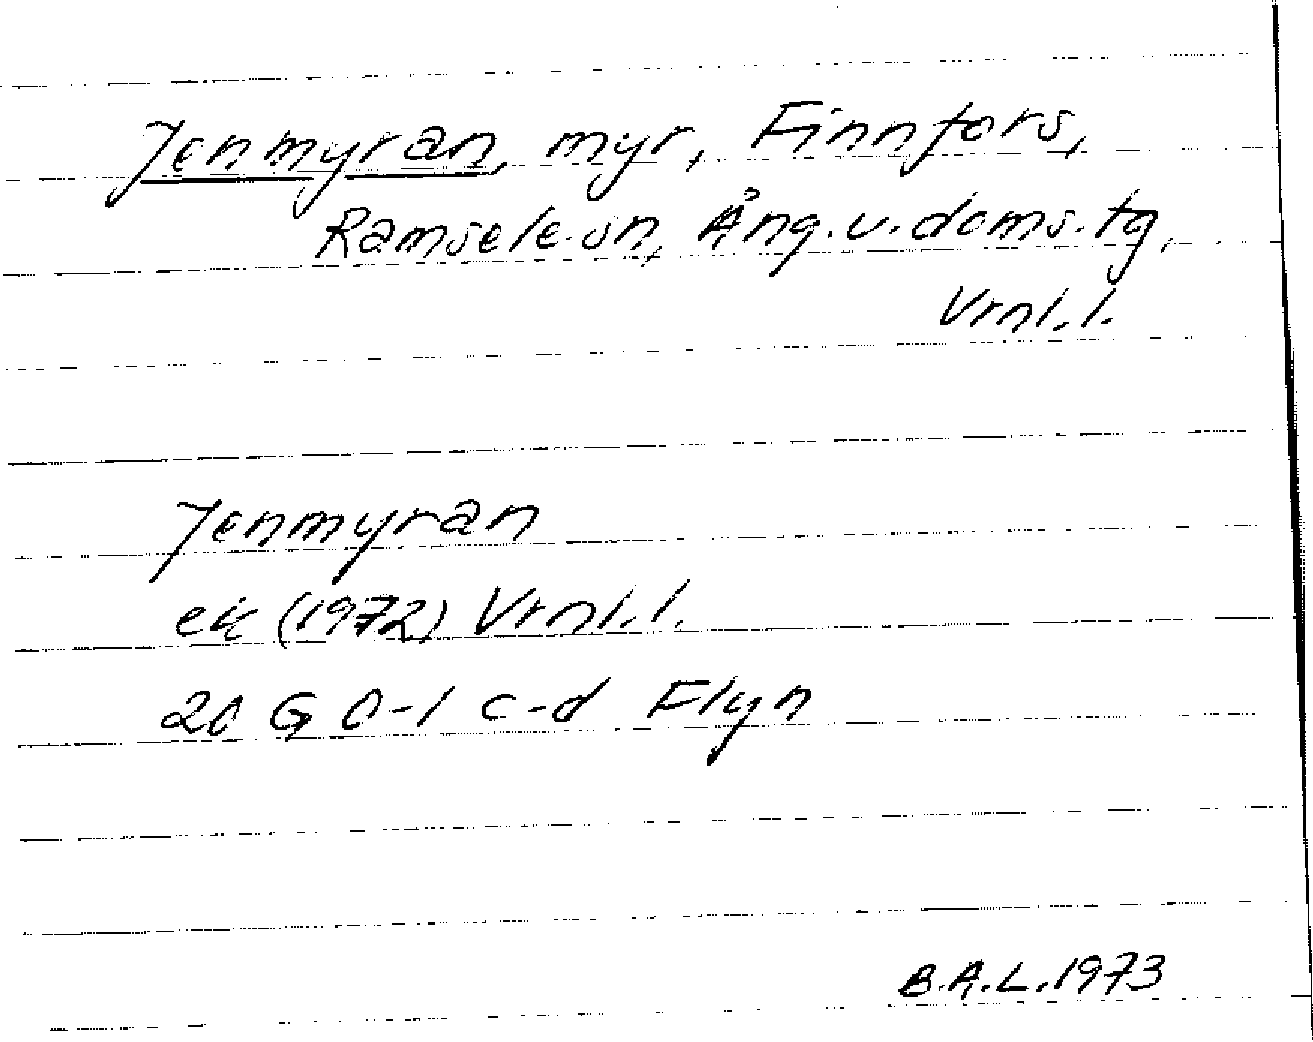 Jenmyran, myr, Finnfors,
Ramsele sn, Ång.v.doms.tg,
Vrnl.l.
Jenmyran
ek (1972) Vrnl.l.
20 G 0-1 c-d Flyn
B.A.L. 1973